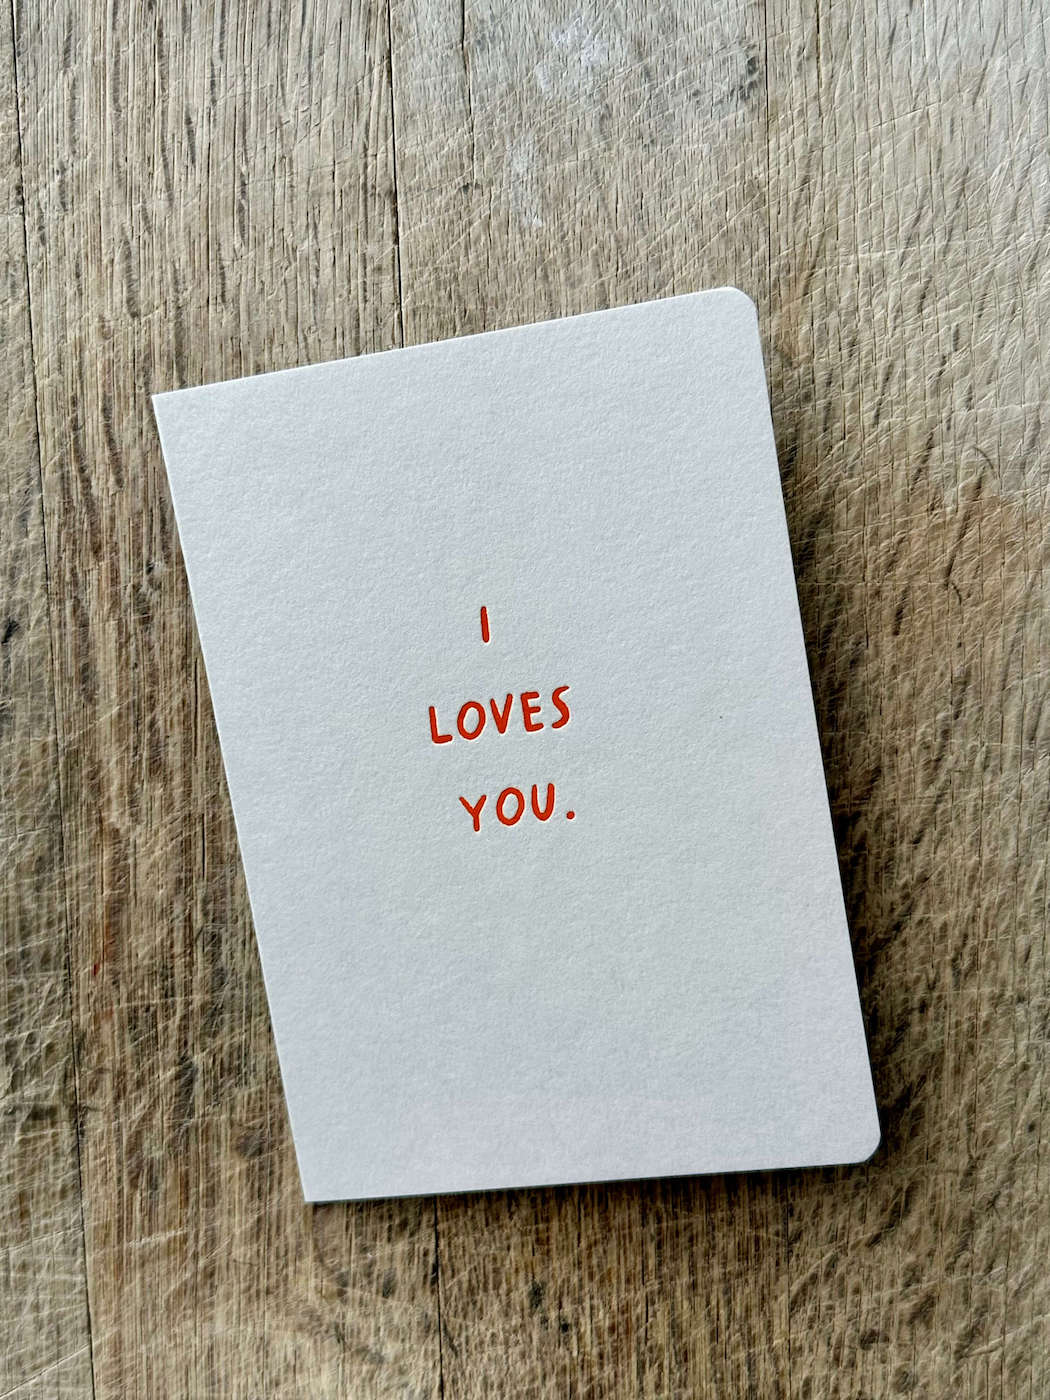 I
LOVES
YOU.